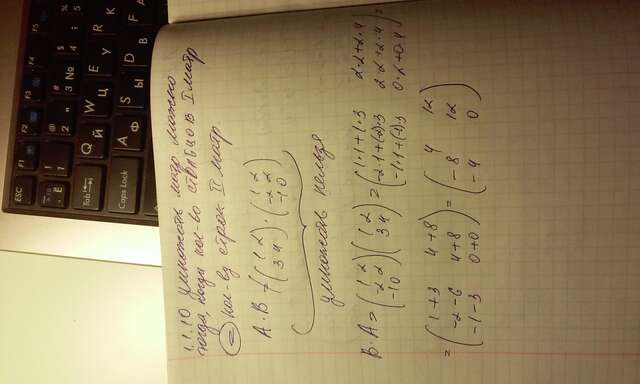 ESC F1 F2 F3 F4 F5
Ё ! 1 @ 2 " # 3 № $ 4 ; % 5
Tab Q Й W Ц E У R К
Caps Lock A Ф S Ы D В F А
1.1.10 умножать матр можно
тогда, когда кол-во столбцов I матр
= кол-ву строк II матр
A·B = (1 2 · (1 2
3 4) -2 2
-1 0)
умножать нельзя
B·A = (1 2 (1 2 = (1·1+1·3 2·2+2·4 =
-2 2 3 4) -2·1+(-2)·3 2·2+2·4
-1 0) -1·1+(-1)·3 0·2+0·4)
= (1+3 4+8 = (4 12
-2-6 4+8 -8 12
-1-3 0+0) -4 0)